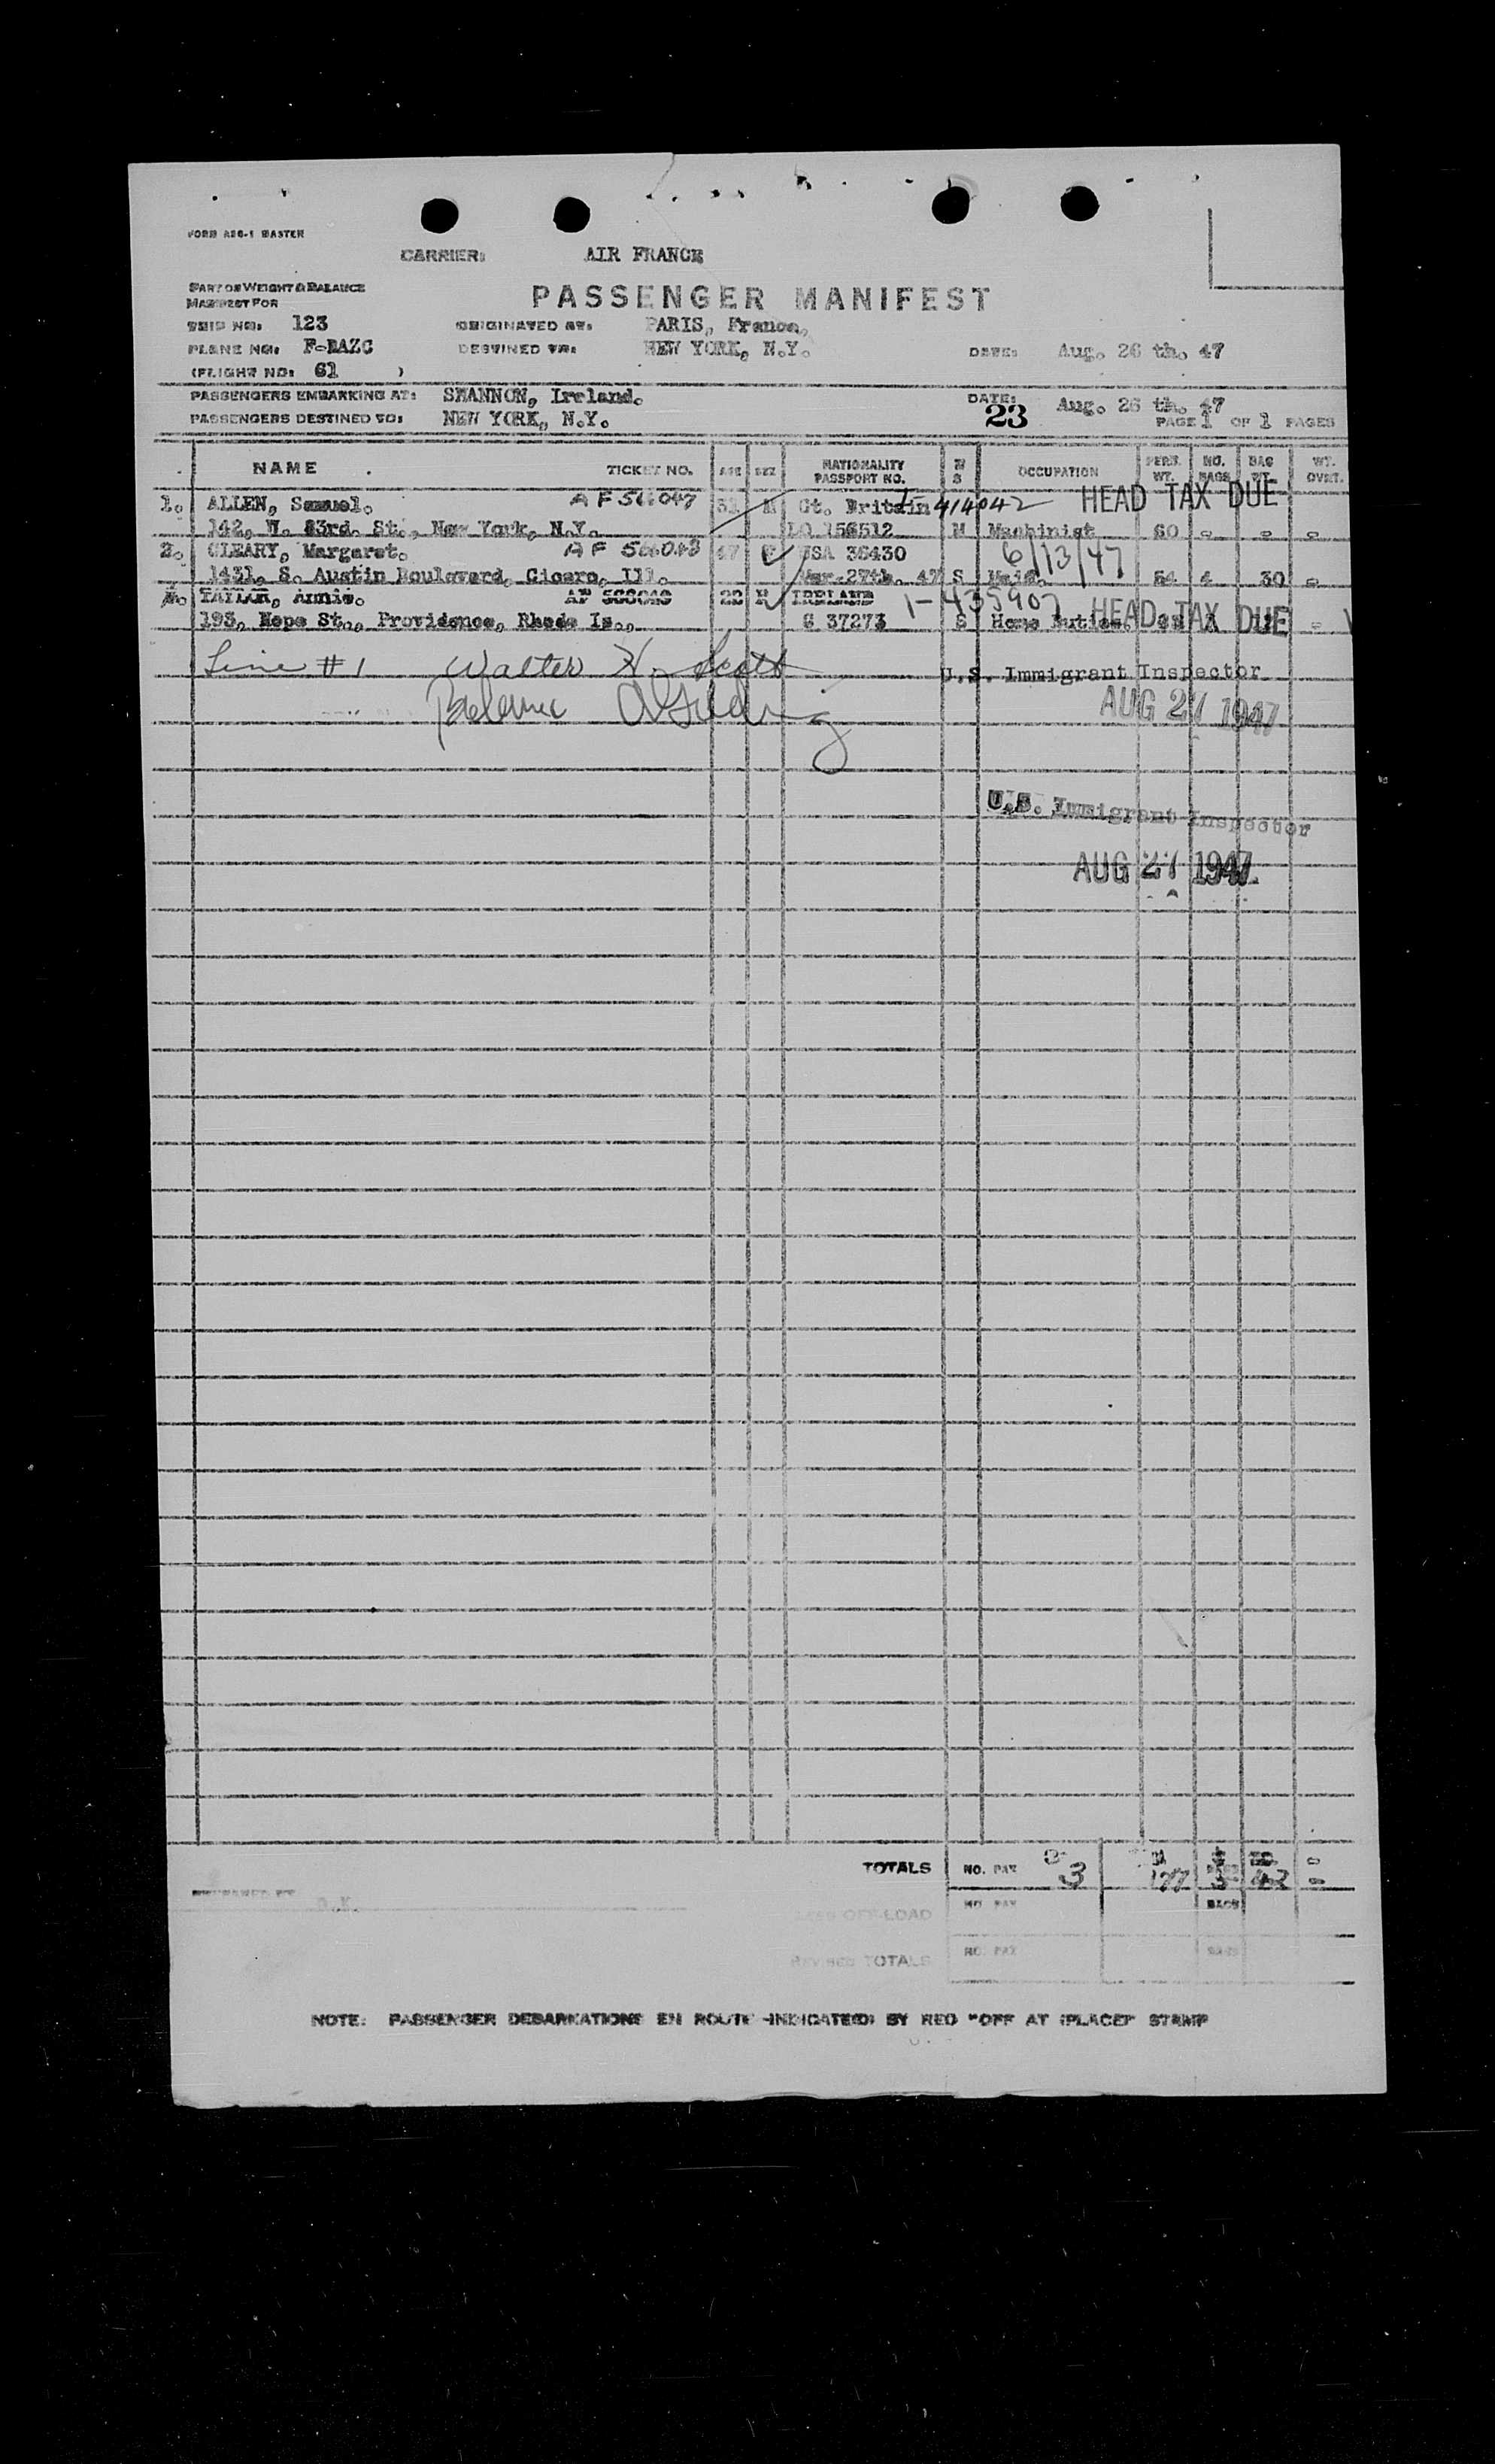 FORM ASC-1 MASTER
CARRIER: AIR FRANCE
PART OF WEIGHT & BALANCE
MANIFEST FOR
PASSENGER MANIFEST
TRIP NO: 123 ORIGINATED AT: PARIS, France,
PLANE NO: F-BAZC DESTINED TO: NEW YORK, N.Y. DATE: Aug. 26 th. 47
(FLIGHT NO: 61 )
PASSENGERS EMBARKING AT: SHANNON, Ireland. DATE: Aug. 26 th. 47
PASSENGERS DESTINED TO: NEW YORK, N.Y. 23 PAGE 1 OF 1 PAGES
NAME TICKET NO. AGE SEX NATIONALITY PASSPORT NO. M S OCCUPATION PERS. WT. NO. BAGS BAG WT. WT. OVST.
1. ALLEN, Samuel. AF 566047 31 M Gt. Britain 414042 HEAD TAX DUE
142, W. 83rd. St., New York, N.Y. LO 156512 M Machinist 60 - - -
2. CLEARY, Margaret. AF 566048 47 F USA 36430 6/13/47
1431, S. Austin Boulevard, Cicero, Ill. Mar.27th. 47 S Maid. 54 4 30 -
TAYLOR, Annie. 22 IRELAND 1-435907 HEAD TAX DUE
193, Hope St., Providence, Rhode Is., S 37273 S Home Duties
Line #1 Walter H. Scott U.S. Immigrant Inspector
Balance
AUG 27 1947
U.S. Immigrant Inspector
AUG 27 1947
TOTALS NO. PAX 3 177 5 42
PREPARED BY
NO. PAX BAGS
OFF-LOAD
NO. PAX BAGS
REVISED TOTALS
NOTE: PASSENGER DEBARKATIONS EN ROUTE INDICATED BY RED "OFF AT (PLACE)" STAMP